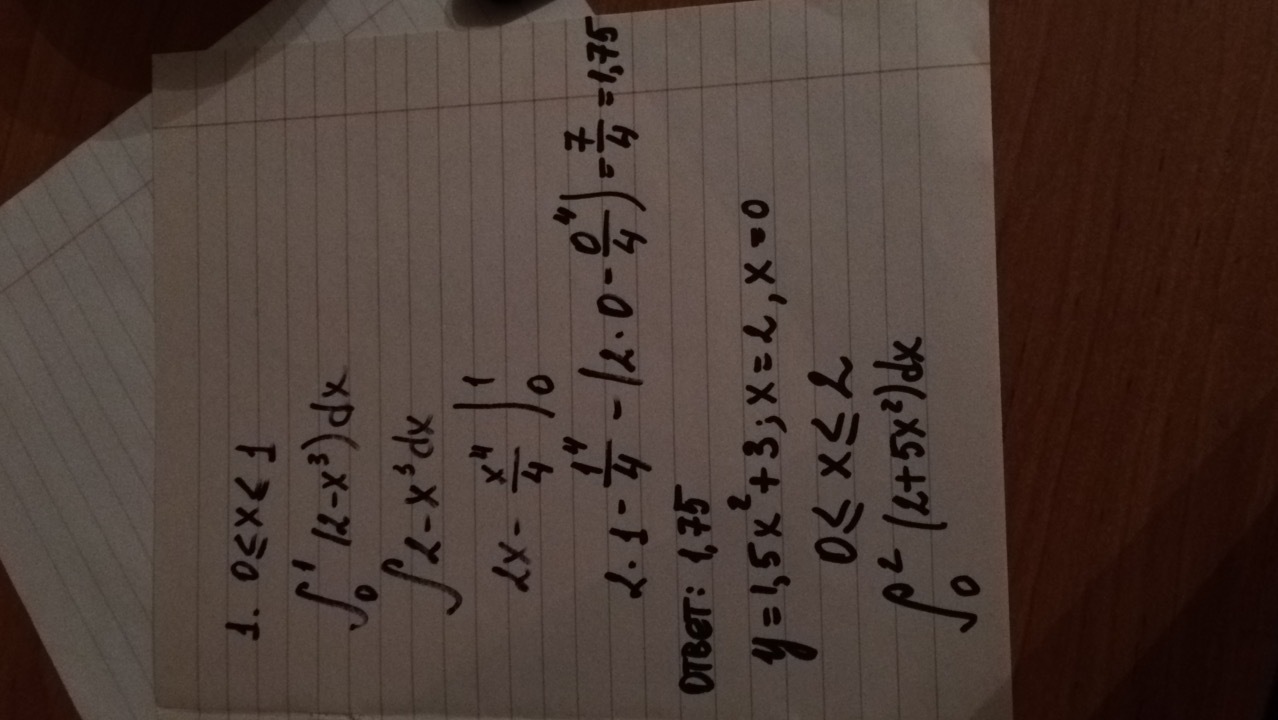 1. 0≤x≤1
∫₀¹ (2-x³)dx
∫2-x³dx
2x - x⁴/4 |₀¹
2·1 - 1⁴/4 - (2·0 - 0⁴/4) = 7/4 = 1,75
ОТВЕТ: 1,75
y=1,5x²+3; x=2, x=0
0≤x≤2
∫₀² (2+5x²)dx